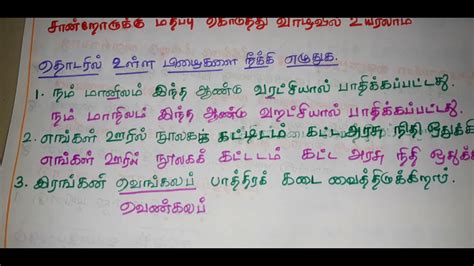 சான்றோருக்கு மதிப்பு கொடுத்து வாழ்வில் உயரலாம்
தொடரில் உள்ள பிழைகளை நீக்கி எழுதுக.
1. நம் மாநிலம் இந்த ஆண்டு வரட்சியால் பாதிக்கப்பட்டது.
நம் மாநிலம் இந்த ஆண்டு வறட்சியால் பாதிக்கப்பட்டது.
2. எங்கள் ஊரில் நூலகக் கட்டிடம் கட்ட அரசு நிதி ஒதுக்கி
எங்கள் ஊரில் நூலகக் கட்டடம் கட்ட அரசு நிதி ஒதுக்கி
3. இரங்கன் வெங்கலப் பாத்திரக் கடை வைத்திடுக்கிறார்.
வெண்கலப்